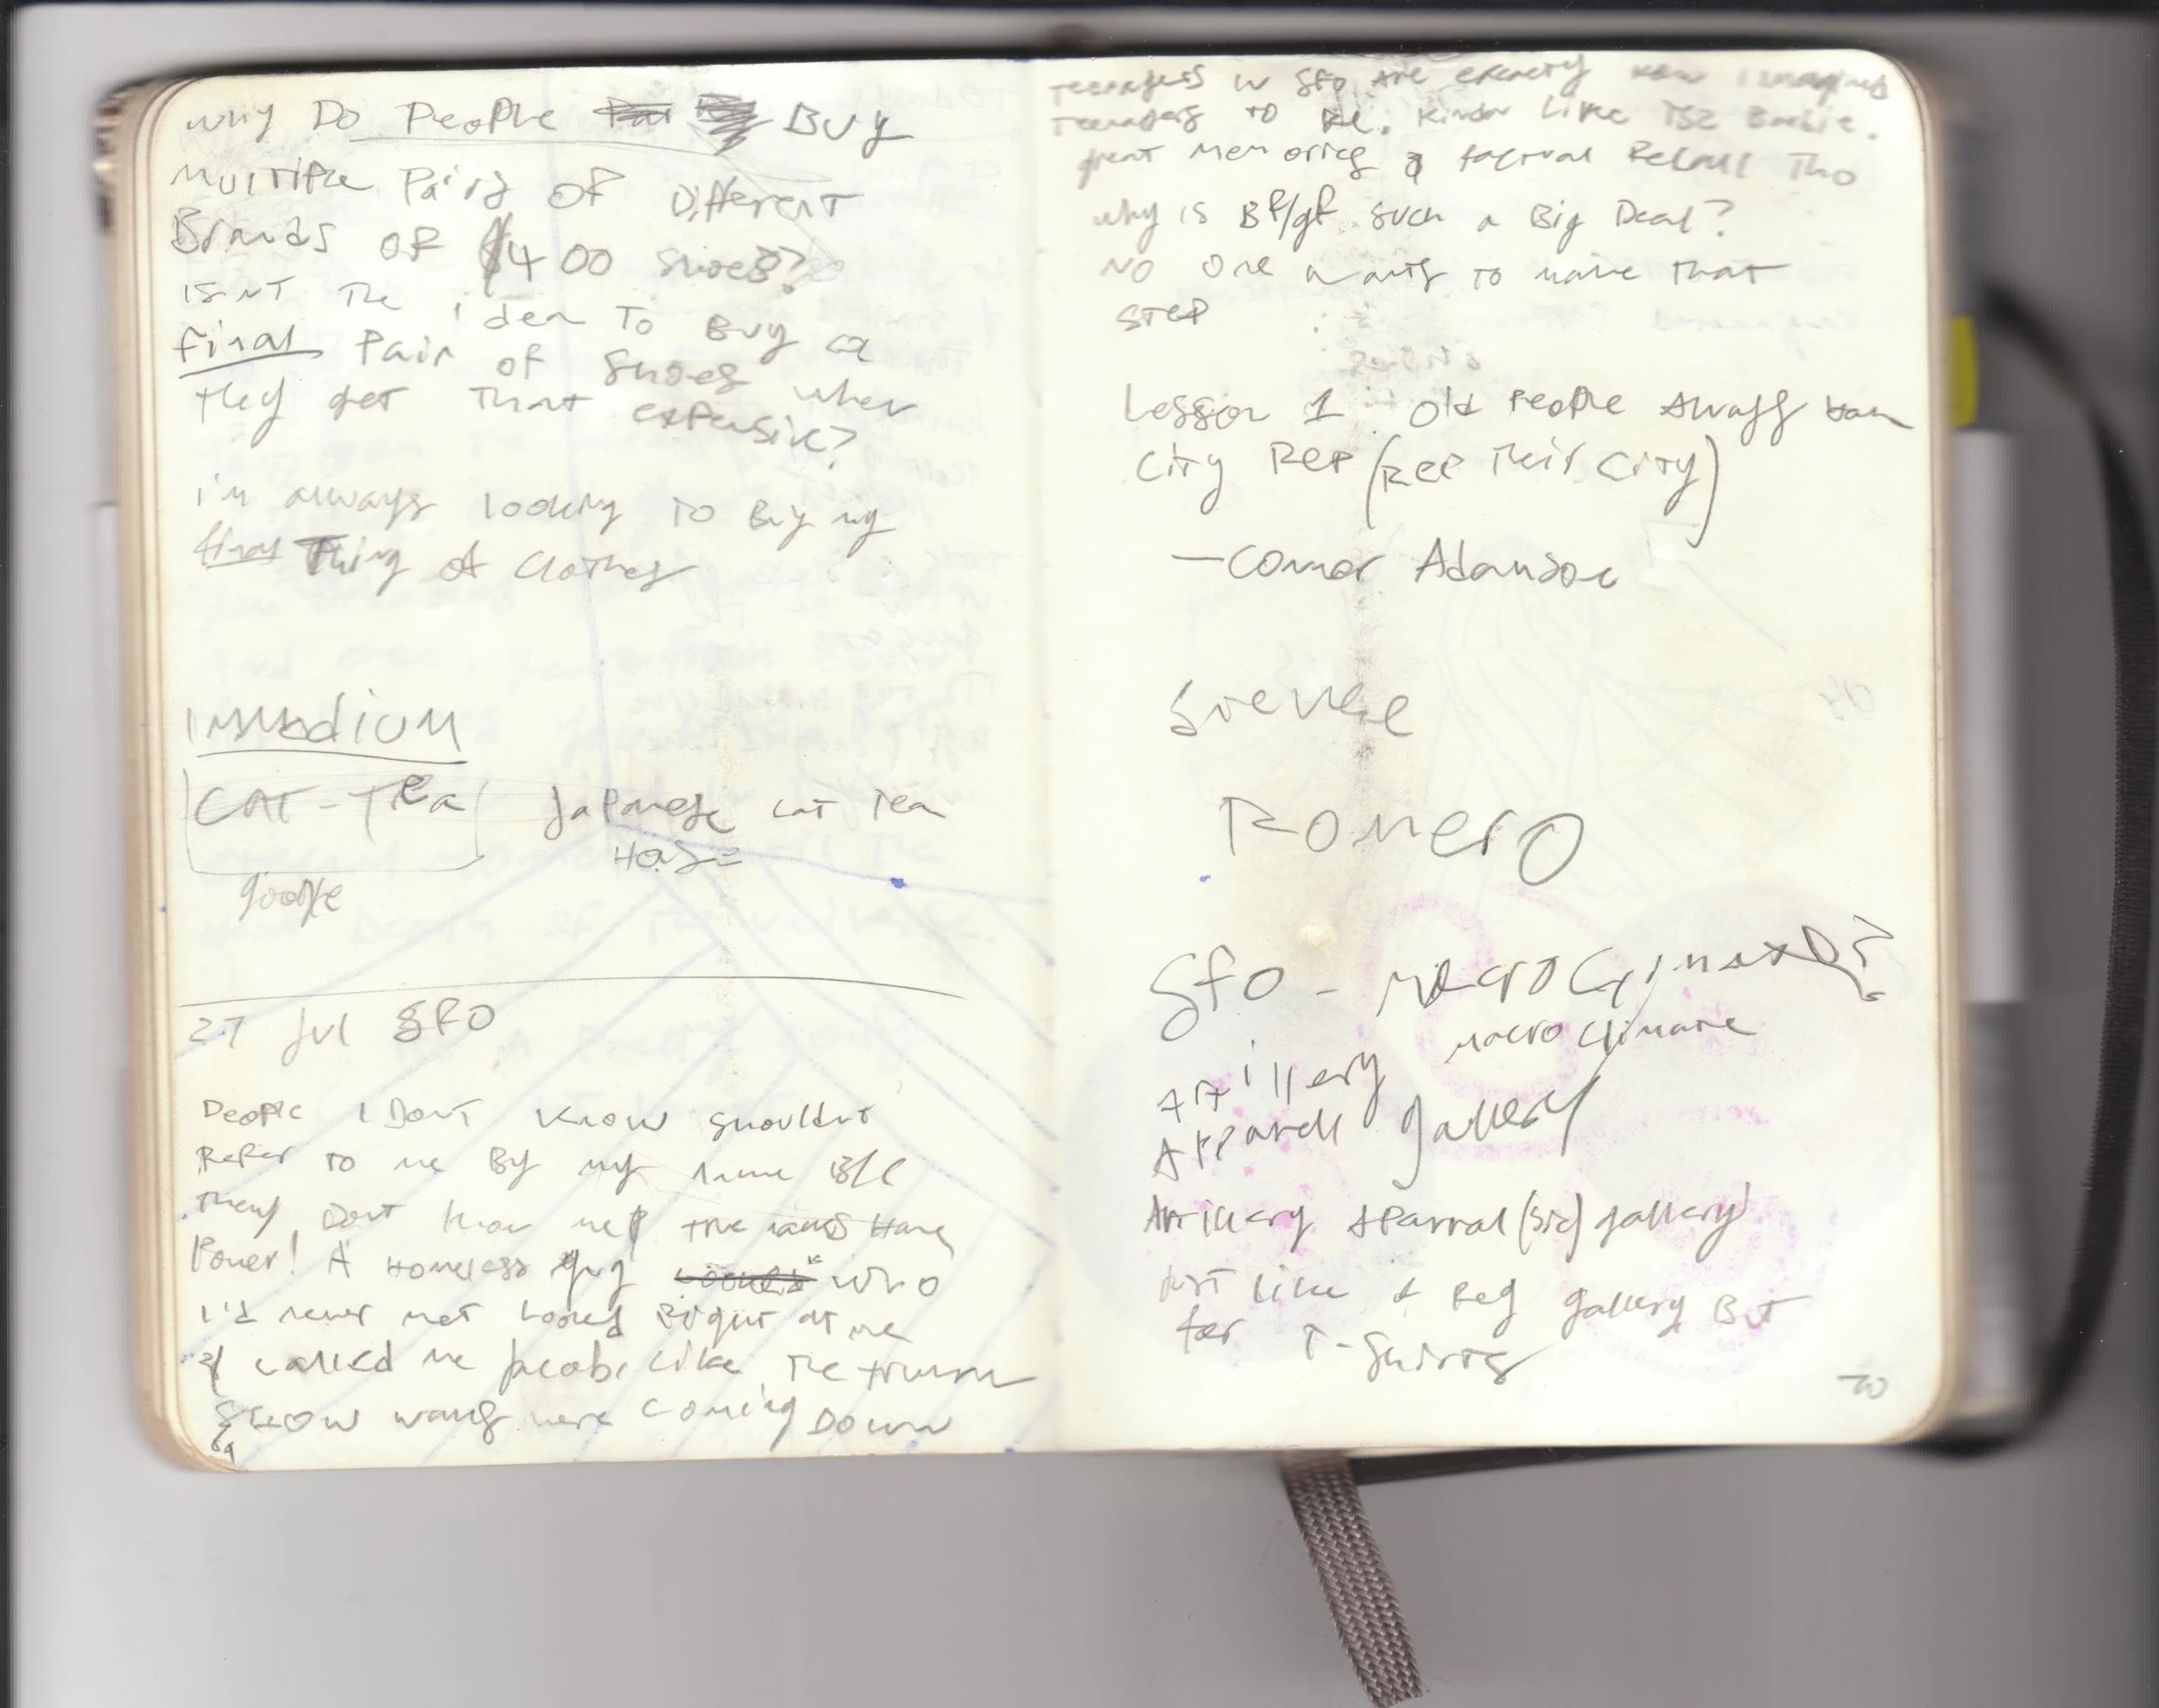 why Do People Buy
Multiple Pairs of Different
Brands of $400 shoes?
isnt the idea To Buy a
final Pair of shoes when
they get that expensive?
i'm always looking to Buy my
final Thing of Clothes
immedium
CAT-Tea Japanese cat Tea
House
google
27 Jul SFO
People I Dont Know shouldnt
Refer to me By my name B/C
They Dont know me & true names Have
Power! A Homeless guy who
I'd never met looked Right at me
& called me Jacob, like The truman
show walls were coming Down
Teenagers in SFO are exactly how I imagined
Teenagers to Be. Kinda Like TS2 Barbie.
great memories & factual Recall Tho
why is Bf/gf such a Big Deal?
NO one wants to make that
Step
Lesson 1 Old People Always
City Rep (Rep Their City)
— Connor
Romero
SFO - MicroClimates
macroclimate
Artillery
Apparell gallery
Artillery Apparral (sic) gallery
Just Like A Reg gallery But
for T-Shirts